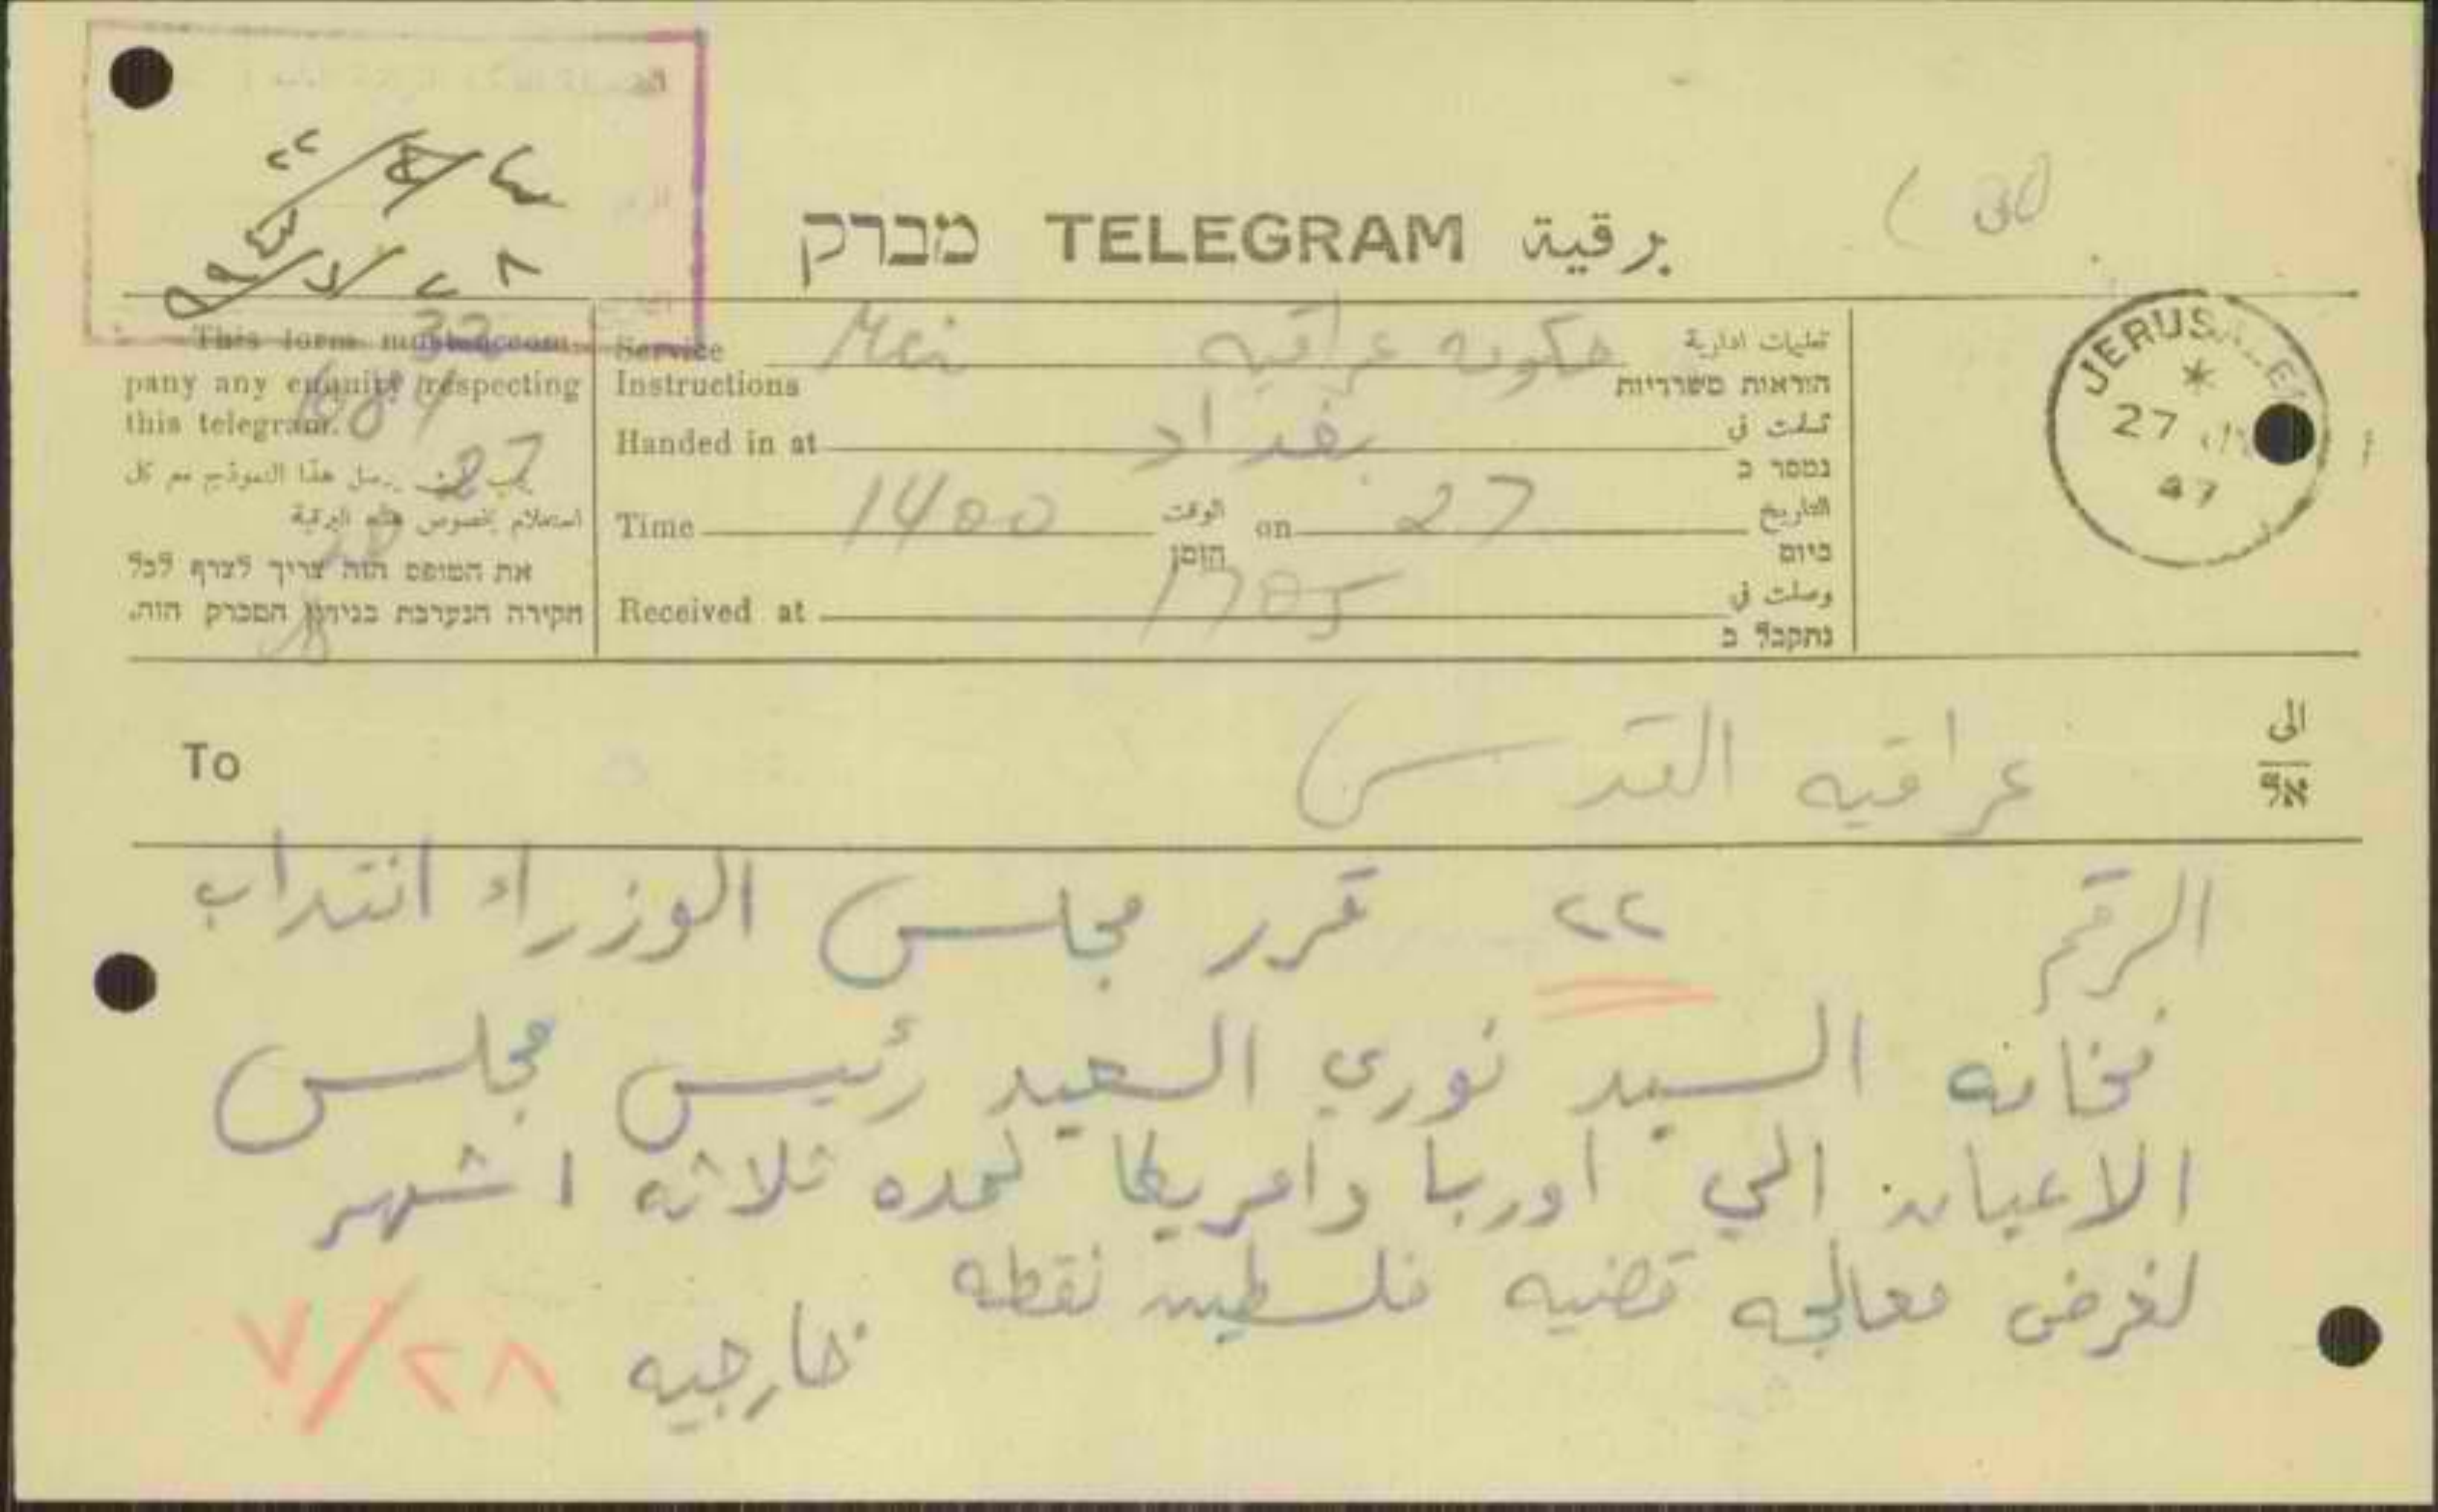 برقية TELEGRAM מברק
This form must accompany any enquiry respecting this telegram.
يرسل هذا النموذج مع كل
استعلام بخصوص هذه البرقية
את הטופס הזה צריך לצרף לכל
חקירה הנערכת בנידון המברק הזה.
32
1684
27
Service Instructions حكومه عراقيه تعليمات ادارية
הוראות משרדיות
Handed in at بغداد تسلمت في
נמסר ב
Time 1400 الوقت הזמן on 27 التاريخ
ביום
Received at 1705 وصلت في
נתקבל ב
JERUSALEM
27
47
To عراقيه القدس الى
אל
الرقم ٢٢ قرر مجلس الوزراء انتداب
فخامه السيد نوري السعيد رئيس مجلس
الاعيان الي اوربا وامريكا لمده ثلاثه اشهر
لغرض معالجه قضيه فلسطين نقطه
خارجيه
٢٨/٧